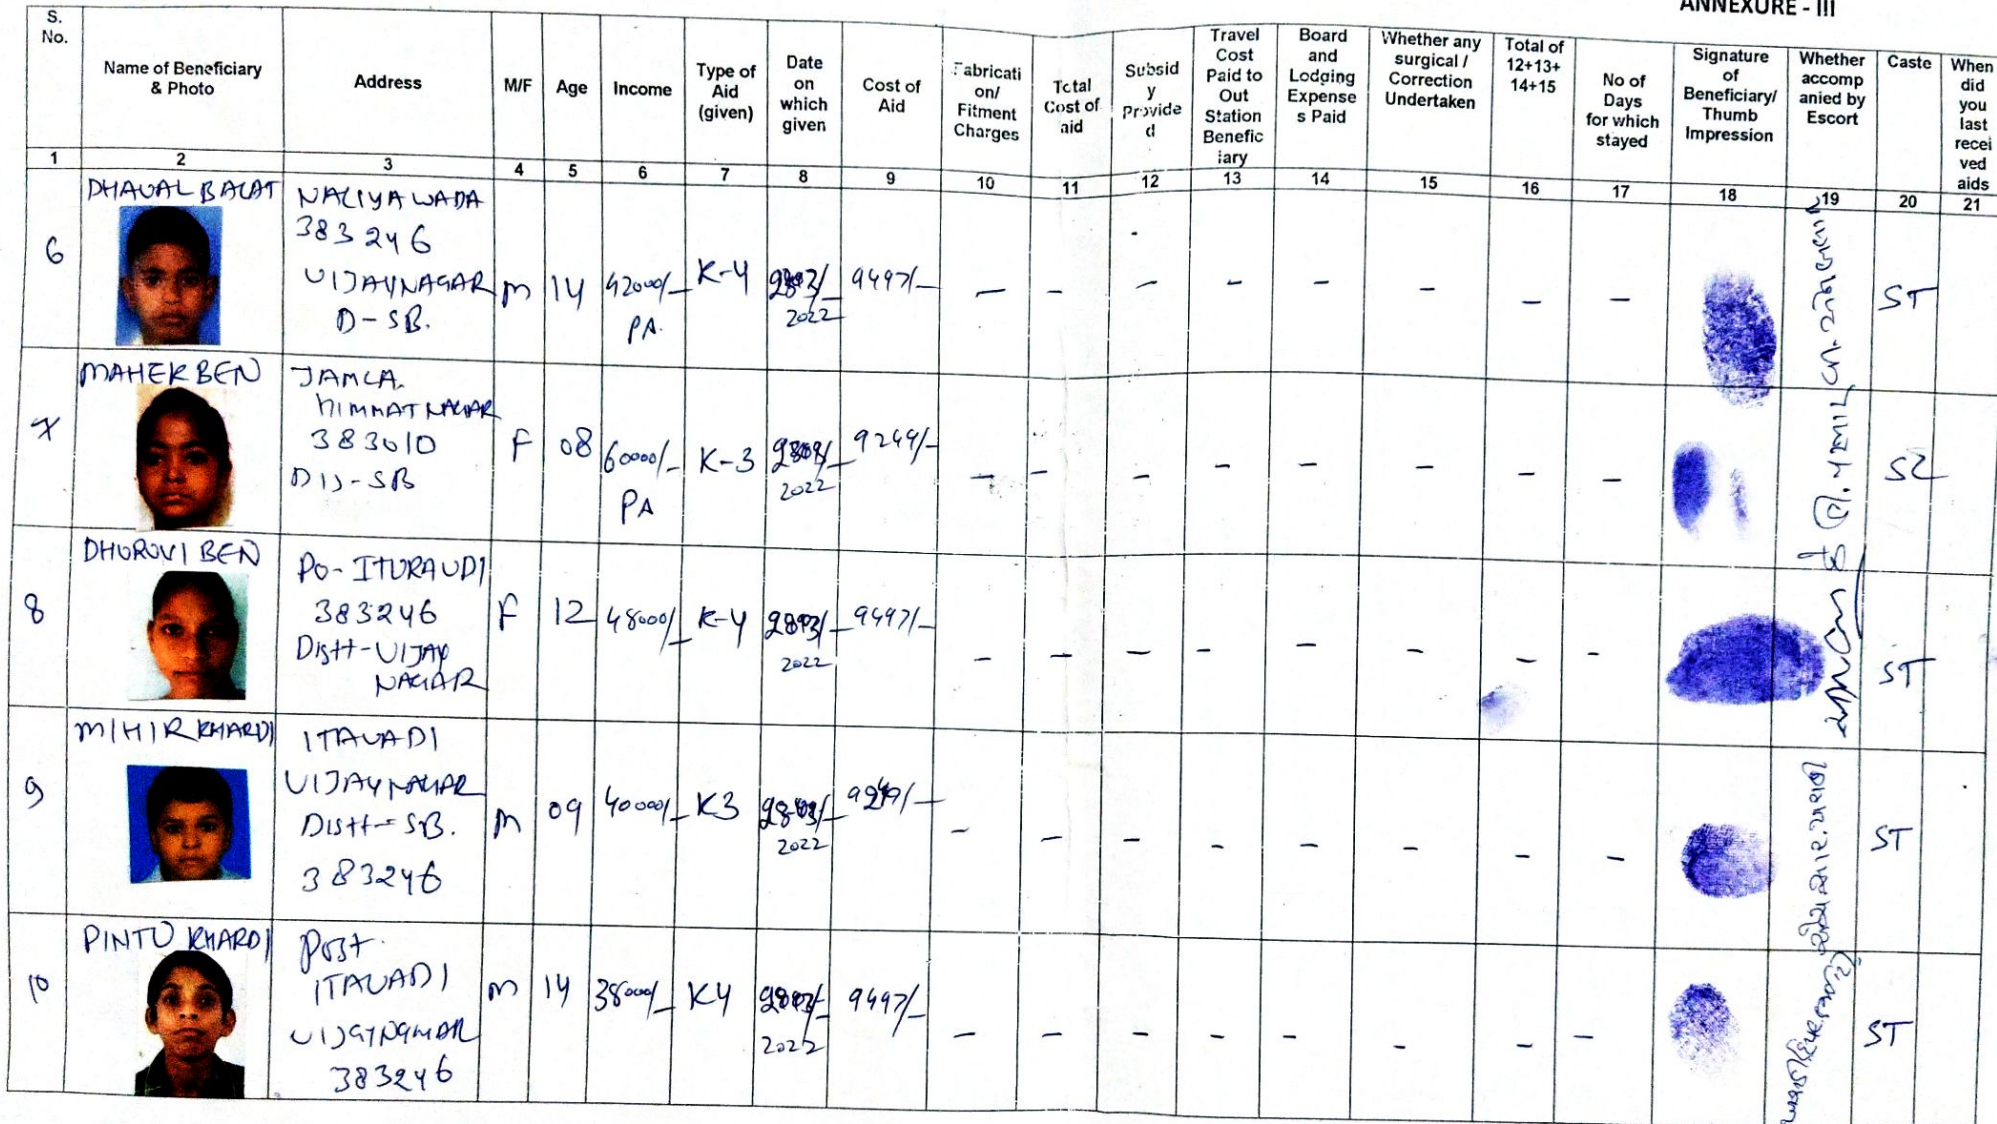 ANNEXURE - III
S. No.
Name of Beneficiary & Photo
Address
M/F
Age
Income
Type of Aid (given)
Date on which given
Cost of Aid
Fabricati on/ Fitment Charges
Total Cost of aid
Subsid y Provide d
Travel Cost Paid to Out Station Benefic iary
Board and Lodging Expense s Paid
Whether any surgical / Correction Undertaken
Total of 12+13+ 14+15
No of Days for which stayed
Signature of Beneficiary/ Thumb Impression
Whether accomp anied by Escort
Caste
When did you last recei ved aids
1 2 3 4 5 6 7 8 9 10 11 12 13 14 15 16 17 18 19 20 21
6
DHAVAL BALAT
NALIYAWADA
383246
VIJAYNAGAR
D-SB.
M 14 42000/- PA. K-4
2022
9497/- - - - - - - - - ST
7
MAHERBEN
JAMLA.
HIMMATNAGAR
383010
DIS-SB
F 08 60000/- PA K-3
2022
9249/- - - - - - - - - SC
8
DHURUVIBEN
PO- ITURAUDI
383246
Distt-VIJAY
NAGAR
F 12 48000/- K-4
2022
9497/- - - - - - - - - ST
9
MIHIR KHARDI
ITAVADI
VIJAYNAGAR
Distt-SB.
383246
M 09 40000/- K3
2022
- - - - - - - - ST
10
PINTU KHARDI
Post
ITAVADI
VIJAYNAGAR
383246
M 14 38000/- K4
2022
9497/- - - - - - - - - ST